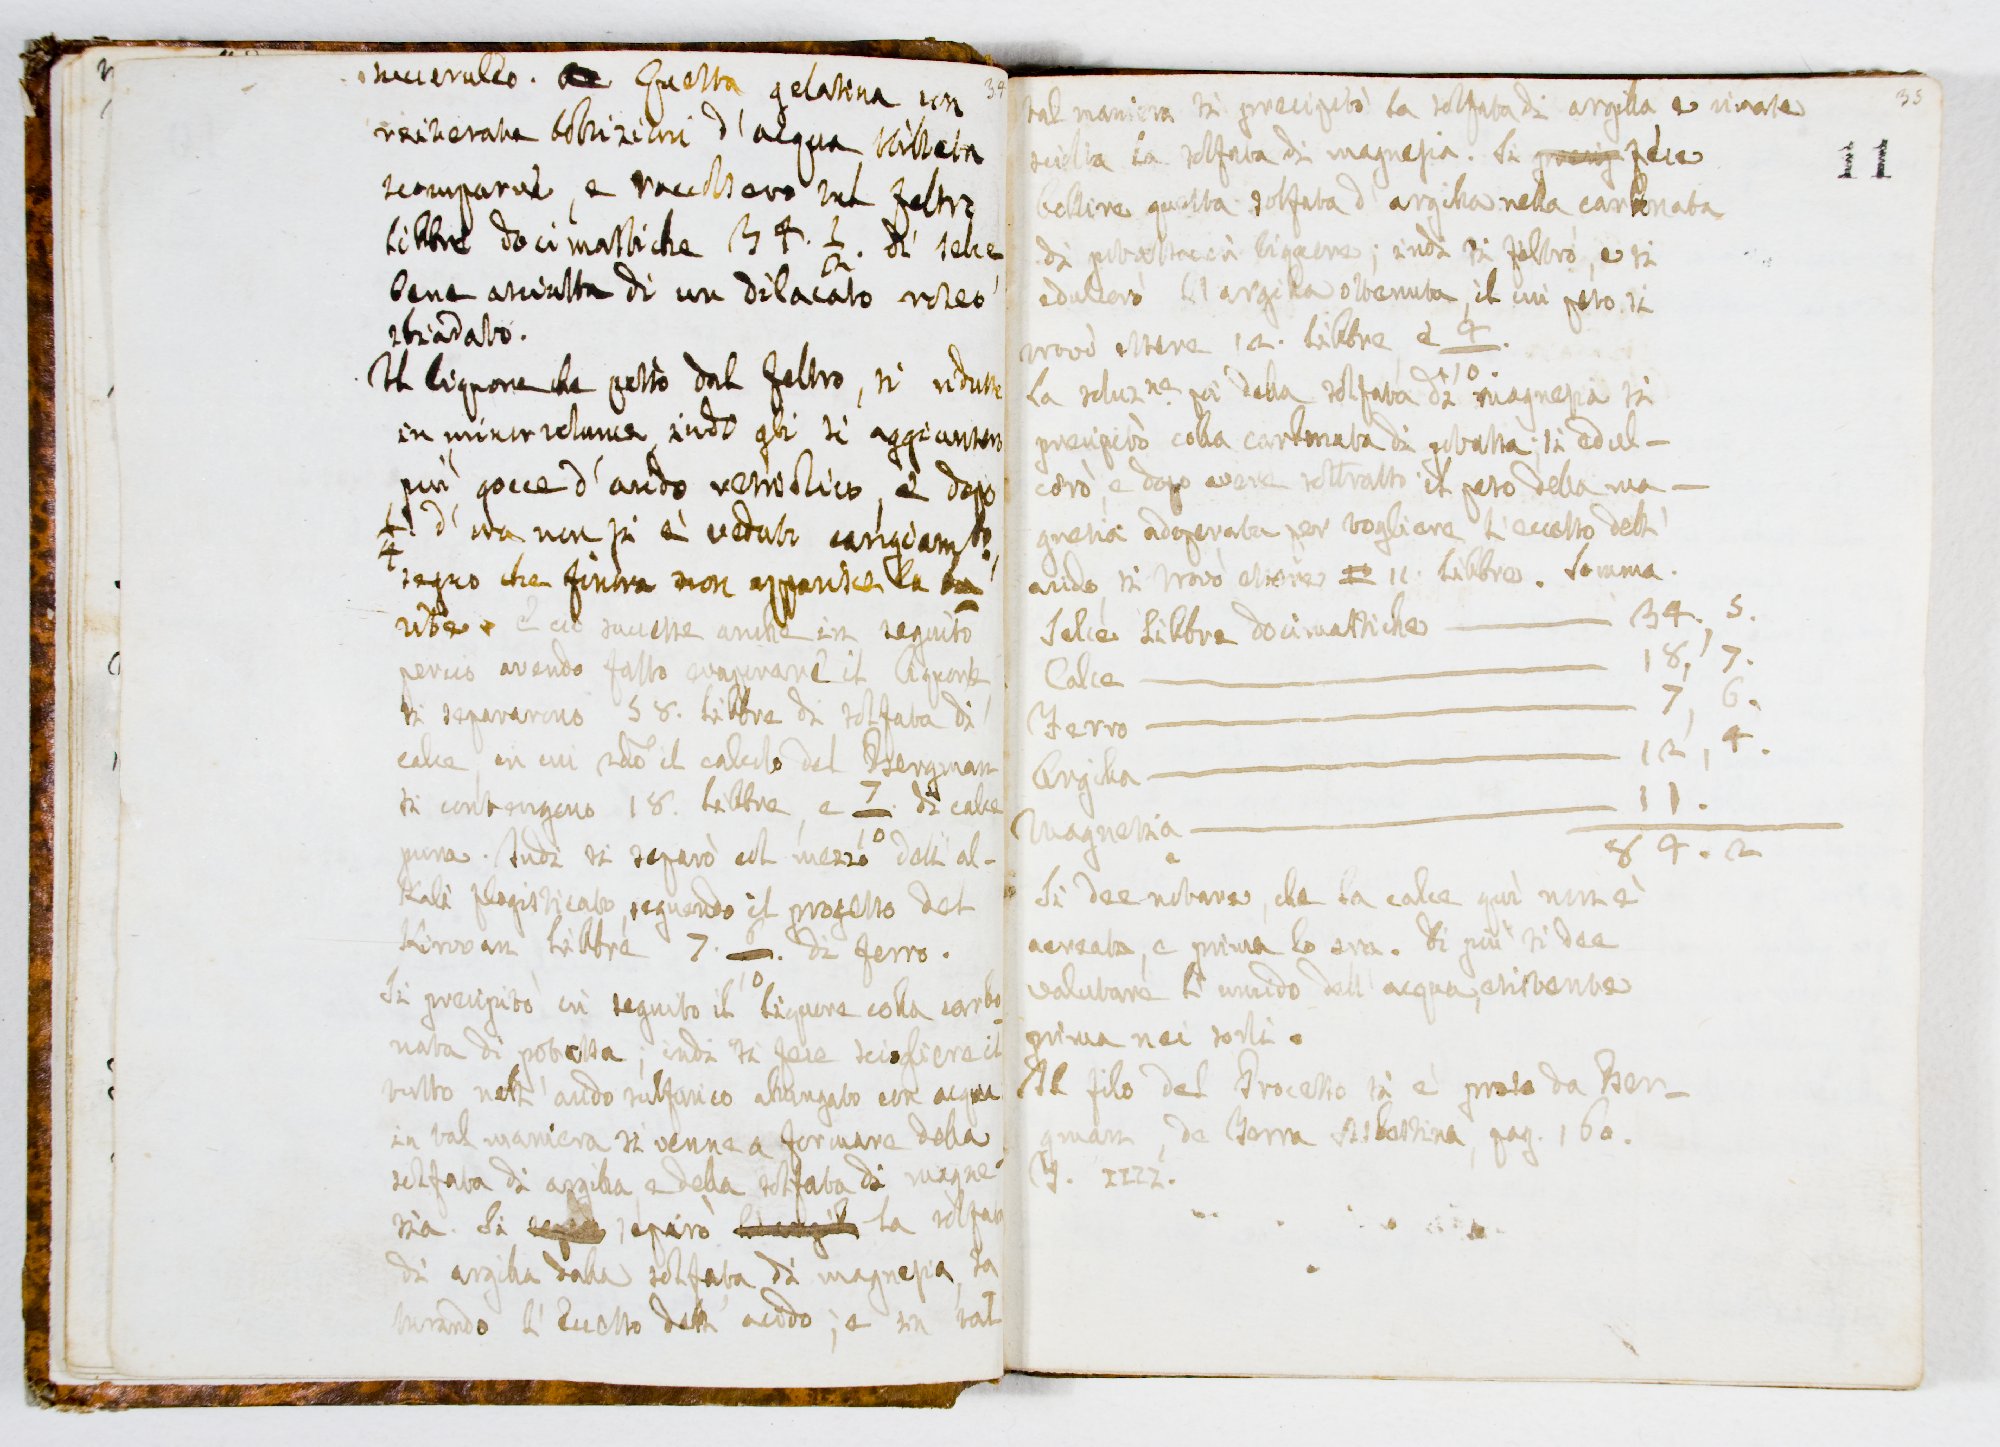 34
nuccerullo. Questa gelatina con
reiterate bollizioni d'acqua stillata
scomparve, e raccolsero sul feltro
Libbre docimastiche 34. 1/2. di selce
bene asciutta di un dilacato roseo
sbiadato.
Il liquore che passò dal feltro, si ridusse
in minor volume, indi gli si aggiunsero
più gocce d'acido vetriolico, e dopo
1/4 d'ora non si è veduto cangiam.to,
segno che finora non apparisce la
ute. E ciò successe anche in seguito
perciò avendo fatto evaporare il liquore
si separarono 58. Libbre di solfata di
calce, in cui sdo il calcolo del Bergman
si contengono 18. Libbre, e 7/10. di calce
pura. Indi si separò col mezzo dell'al-
kali flogisticato, seguendo il progetto del
Kirwan Libbre 7. 6/10. di ferro.
Si precipitò in seguito il liquore colla carbo-
nata di potassa; indi si fece sciogliere il
tutto nell'acido sulfurico allungato con acqua
in tal maniera si venne a formare della
solfata di argilla, e della solfata di magne-
sia. Si separò la solfata
di argilla dalla solfata di magnesia, sa
turando l'eccesso dell'acido; e in tal
35
11
tal maniera si precipitò la solfata di argilla e rimase
sciolta la solfata di magnesia. Si precip fece
bollire questa solfata d'argilla nella carbonata
di potassa liggera; indi si feltrò, e si
edulcorò l'argilla ottenuta, il cui peso si
trovò essere 12. Libbre, e 4/10.
La soluz.ne poi della solfata di magnesia si
precipitò colla carbonata di potassa; si edul-
corò, e dopo avere sottratto il peso della ma-
gnesia adoperata per togliere l'eccesso dell'
acido, si trovò essere 11. Libbre. Somma.
Selce Libbre docimastiche — 34, 5.
Calce — 18, 7.
Ferro — 7, 6.
Argilla — 12, 4.
Magnesia — 11.
84. 2
Si dee notare, che la calce quì non è
aereata, e prima lo era. Di più si dee
valutare l'umido dell'acqua, esistente
prima nei sorli.
Il filo del Processo si è preso da Ber-
gman, de Terra Asbestina, pag. 160.
T. IIII.